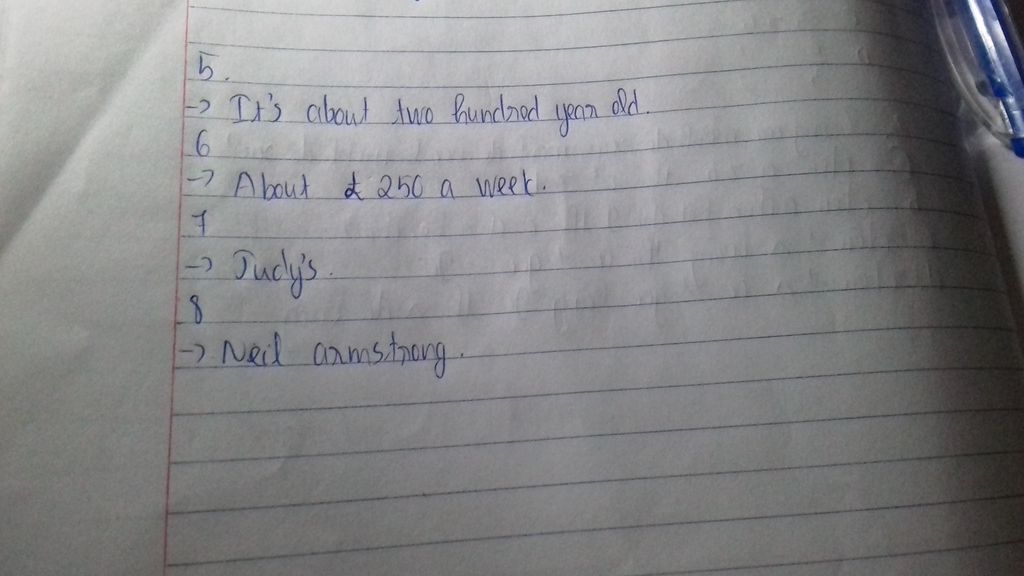 5.
-> It's about two hundred year old.
6
-> About £ 250 a week.
7
-> Judy's.
8
-> Neil armstrong.